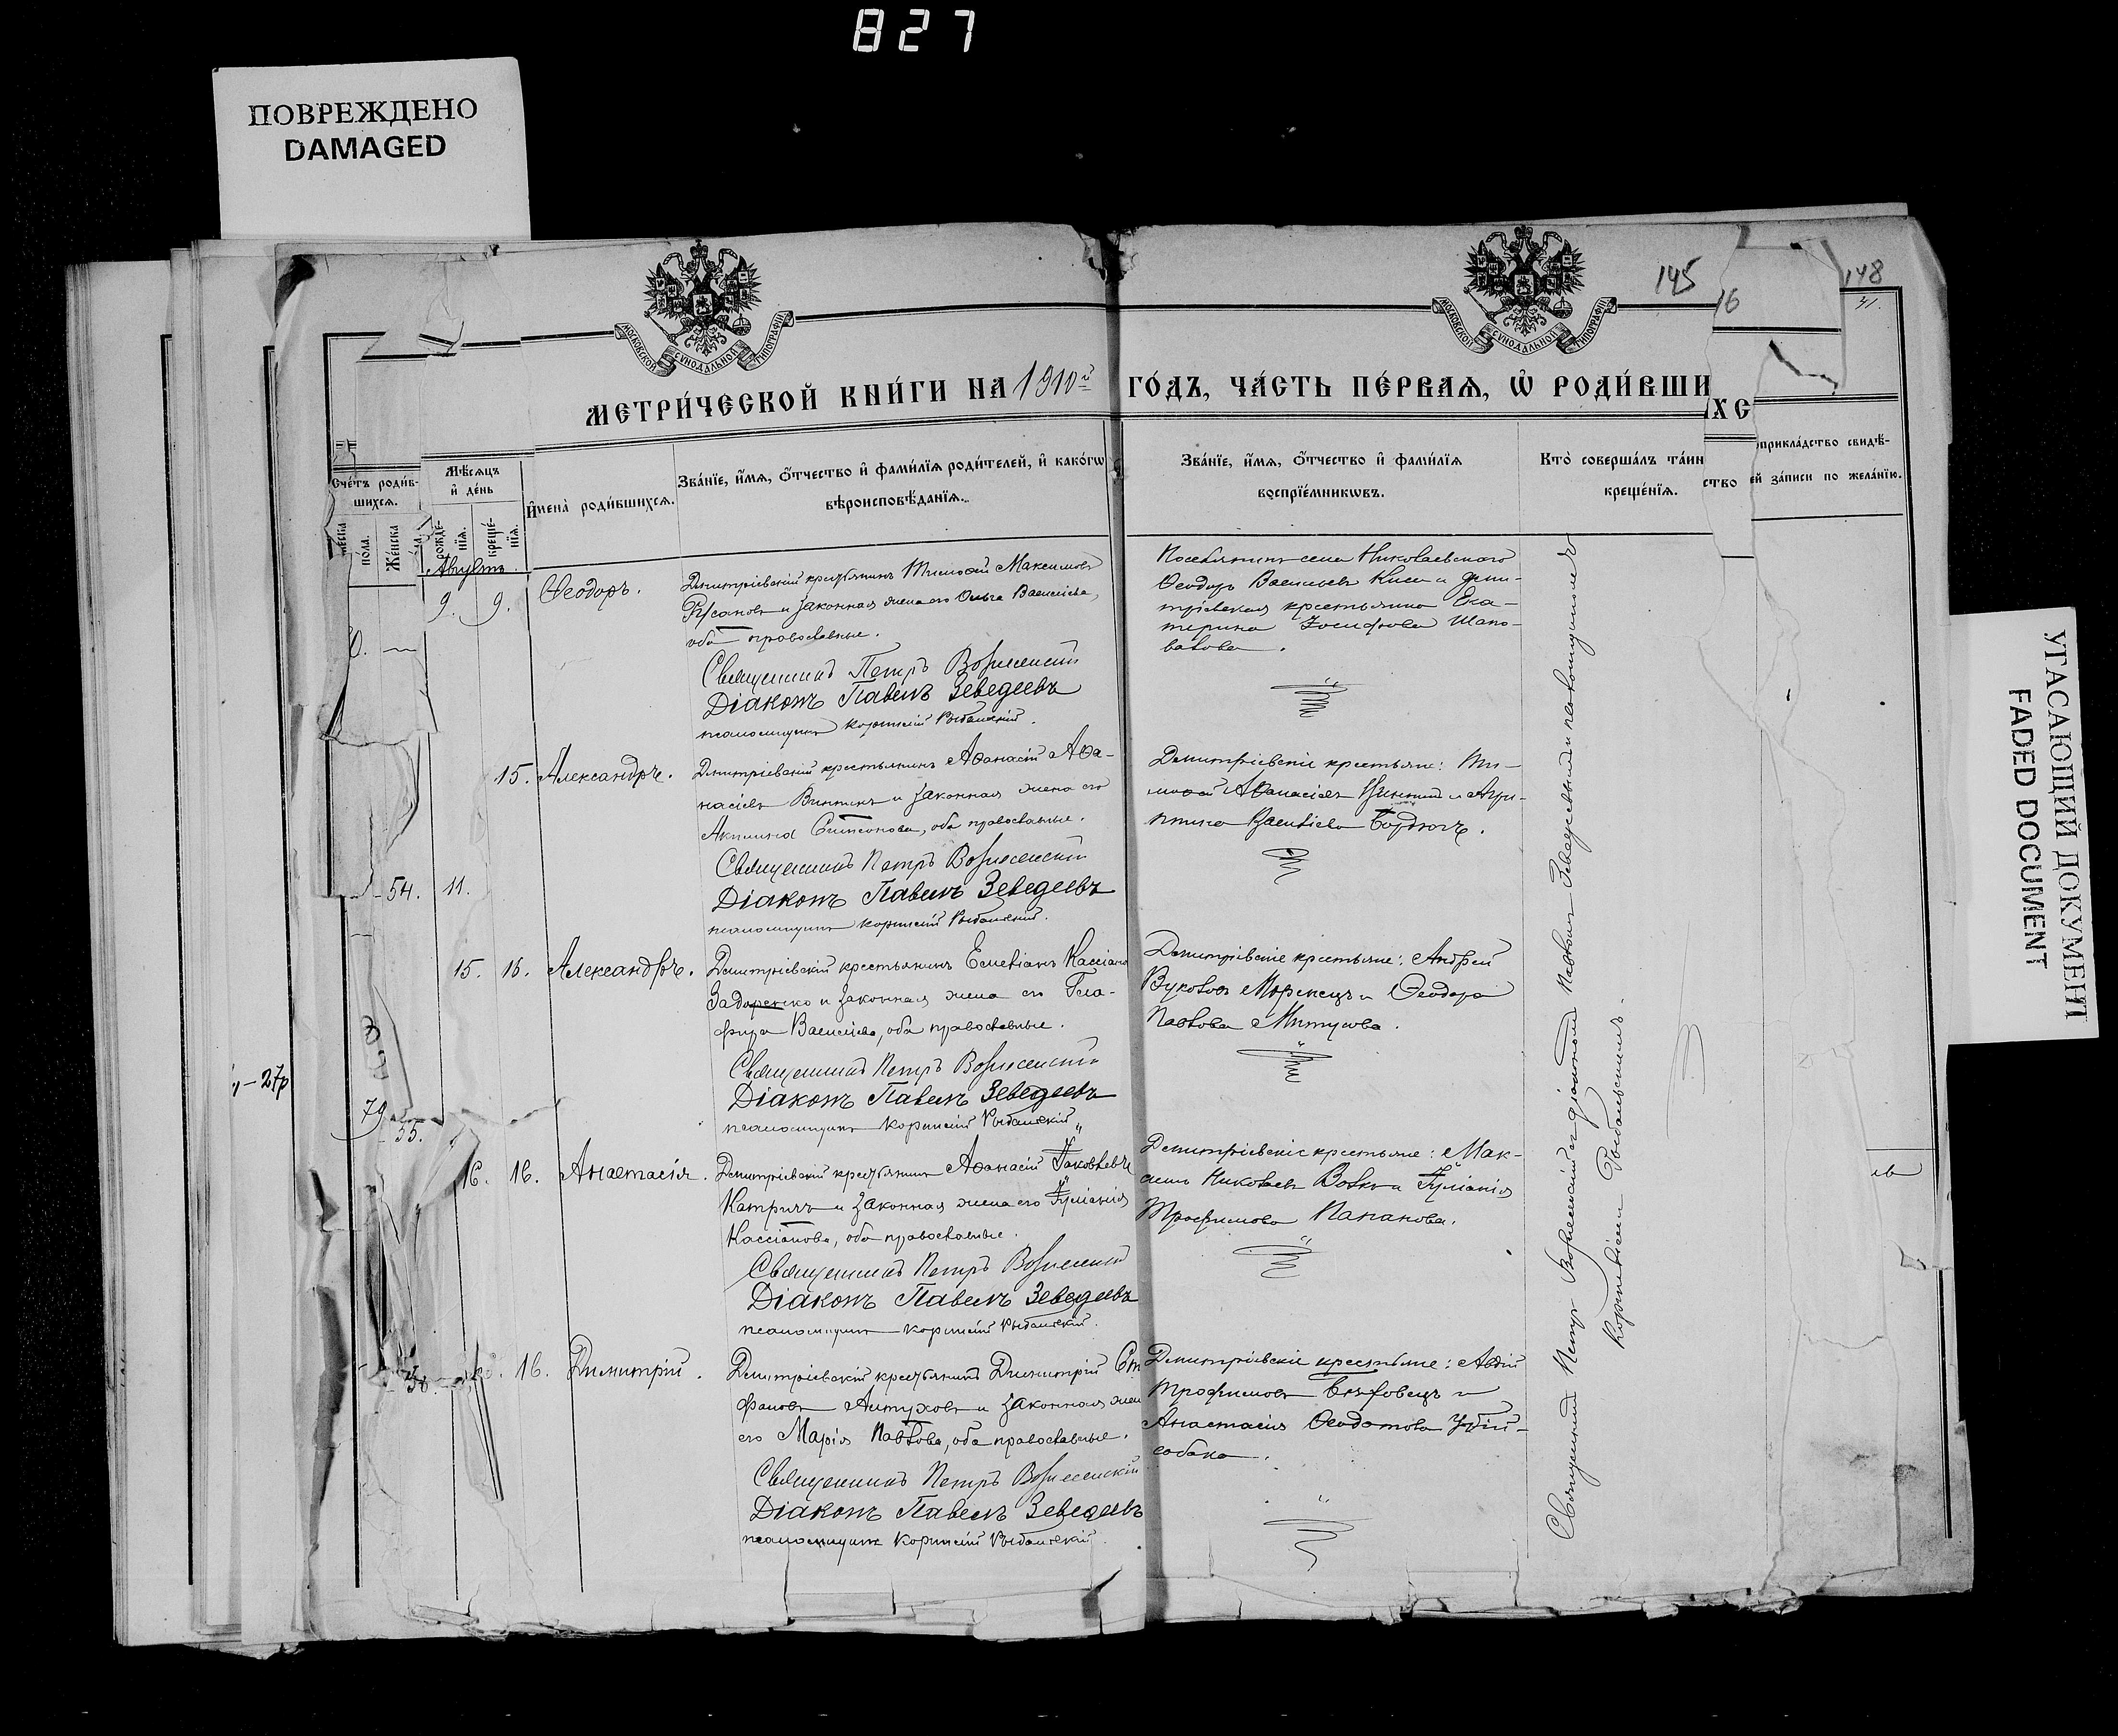 827
ПОВРЕЖДЕНО
DAMAGED
УГАСАЮЩИЙ ДОКУМЕНТ
FADED DOCUMENT
МОСКОВСКОЙ СѴНОДАЛЬНОЙ ТИПОГРАФІИ
МОСКОВСКОЙ СѴНОДАЛЬНОЙ ТИПОГРАФІИ
145
16
148
31.
МЕТРИ́ЧЕСКОЙ КНИ́ГИ НА 1910й ГО́ДЪ, ЧА́СТЬ ПЕ́РВАѦ, Ѿ РОДИ́ВШИ
ХС
Сче́тъ роди́в-
шихсѧ.
по́ла.
Же́нска
Мѣ́сѧцъ
и҆ де́нь
рожде́-
нїѧ.
креще́-
нїѧ.
И҆мена̀ роди́вшихсѧ.
Зва́нїе, и҆́мѧ, ѻ҆́тчество и҆ фами́лїѧ роди́телей, и҆ како́гѡ
вѣроисповѣ́данїѧ.
Зва́нїе, и҆́мѧ, ѻ҆́тчество и҆ фами́лїѧ
воспрїе́мникѡвъ.
Кто̀ соверша́лъ та́ин
креще́нїѧ.
ство
оприкла́дство свидѣ́-
ей за́писи по жела́нїю.
Августъ
9. 9. Ѳеодоръ.
Димитріевскій крестьянинъ Тимоѳей Максимовъ
Русановъ и законная жена его Ольга Васильева,
оба православные.
Священникъ Петръ Вознесенскій
Діаконъ Павелъ Зеведеевъ
псаломщикъ Корнилій Рыбальскій.
Поселянинъ села Николаевского
Ѳеодоръ Васильевъ Киси и Дими-
тріевская крестьянка Ека-
терина Іосифова Шапо-
валова.
54. 11. 15. Александръ.
Димитріевскій крестьянинъ Аѳанасій Аѳа-
насіевъ Винникъ и законная жена его
Акилина Симеонова, оба православные.
Священникъ Петръ Вознесенскій
Діаконъ Павелъ Зеведеевъ
псаломщикъ Корнилій Рыбальскій.
Димитріевскіе крестьяне: Ти-
моѳей Аѳанасіевъ и Агри-
пина Васильева
15. 16. Александръ.
Димитріевскій крестьянинъ Емеліанъ Кассіано
Задоренко и законная жена его Гла-
фира Васильева, оба православные.
Священникъ Петръ Вознесенскій
Діаконъ Павелъ Зеведеевъ
псаломщикъ Корнилій Рыбальскій
Димитріевскіе крестьяне: Андрей
Вуколовъ Моренецъ и Ѳеодора
Павлова Митусова.
79
55.
16. 16. Анастасія.
Димитріевскій крестьянинъ Аѳанасій Іаковлевъ
Катричъ и законная жена его Іуліанія
Кассіанова, оба православные.
Священникъ Петръ Вознесенскій
Діаконъ Павелъ Зеведеевъ
псаломщикъ Корнилій Рыбальскій.
Димитріевскіе крестьяне: Мак-
симъ Николаевъ Волкъ и Іуліанія
Трофимова Папанова.
16. Димитрій.
Димитріевскій крестьянинъ Димитрій Сте
фановъ Алтуховъ и законная жена
его Марія Павлова, оба православные.
Священникъ Петръ Вознесенскій
Діаконъ Павелъ Зеведеевъ
псаломщикъ Корнилій Рыбальскій.
Димитріевскіе крестьяне: Авдій
Трофимовъ и
Анастасія Ѳеодотова Убій-
собака.
Священникъ Петръ Вознесенскій съ діакономъ Павломъ Зеведеевымъ и псаломщикомъ
Корниліемъ Рыбальскимъ.
27